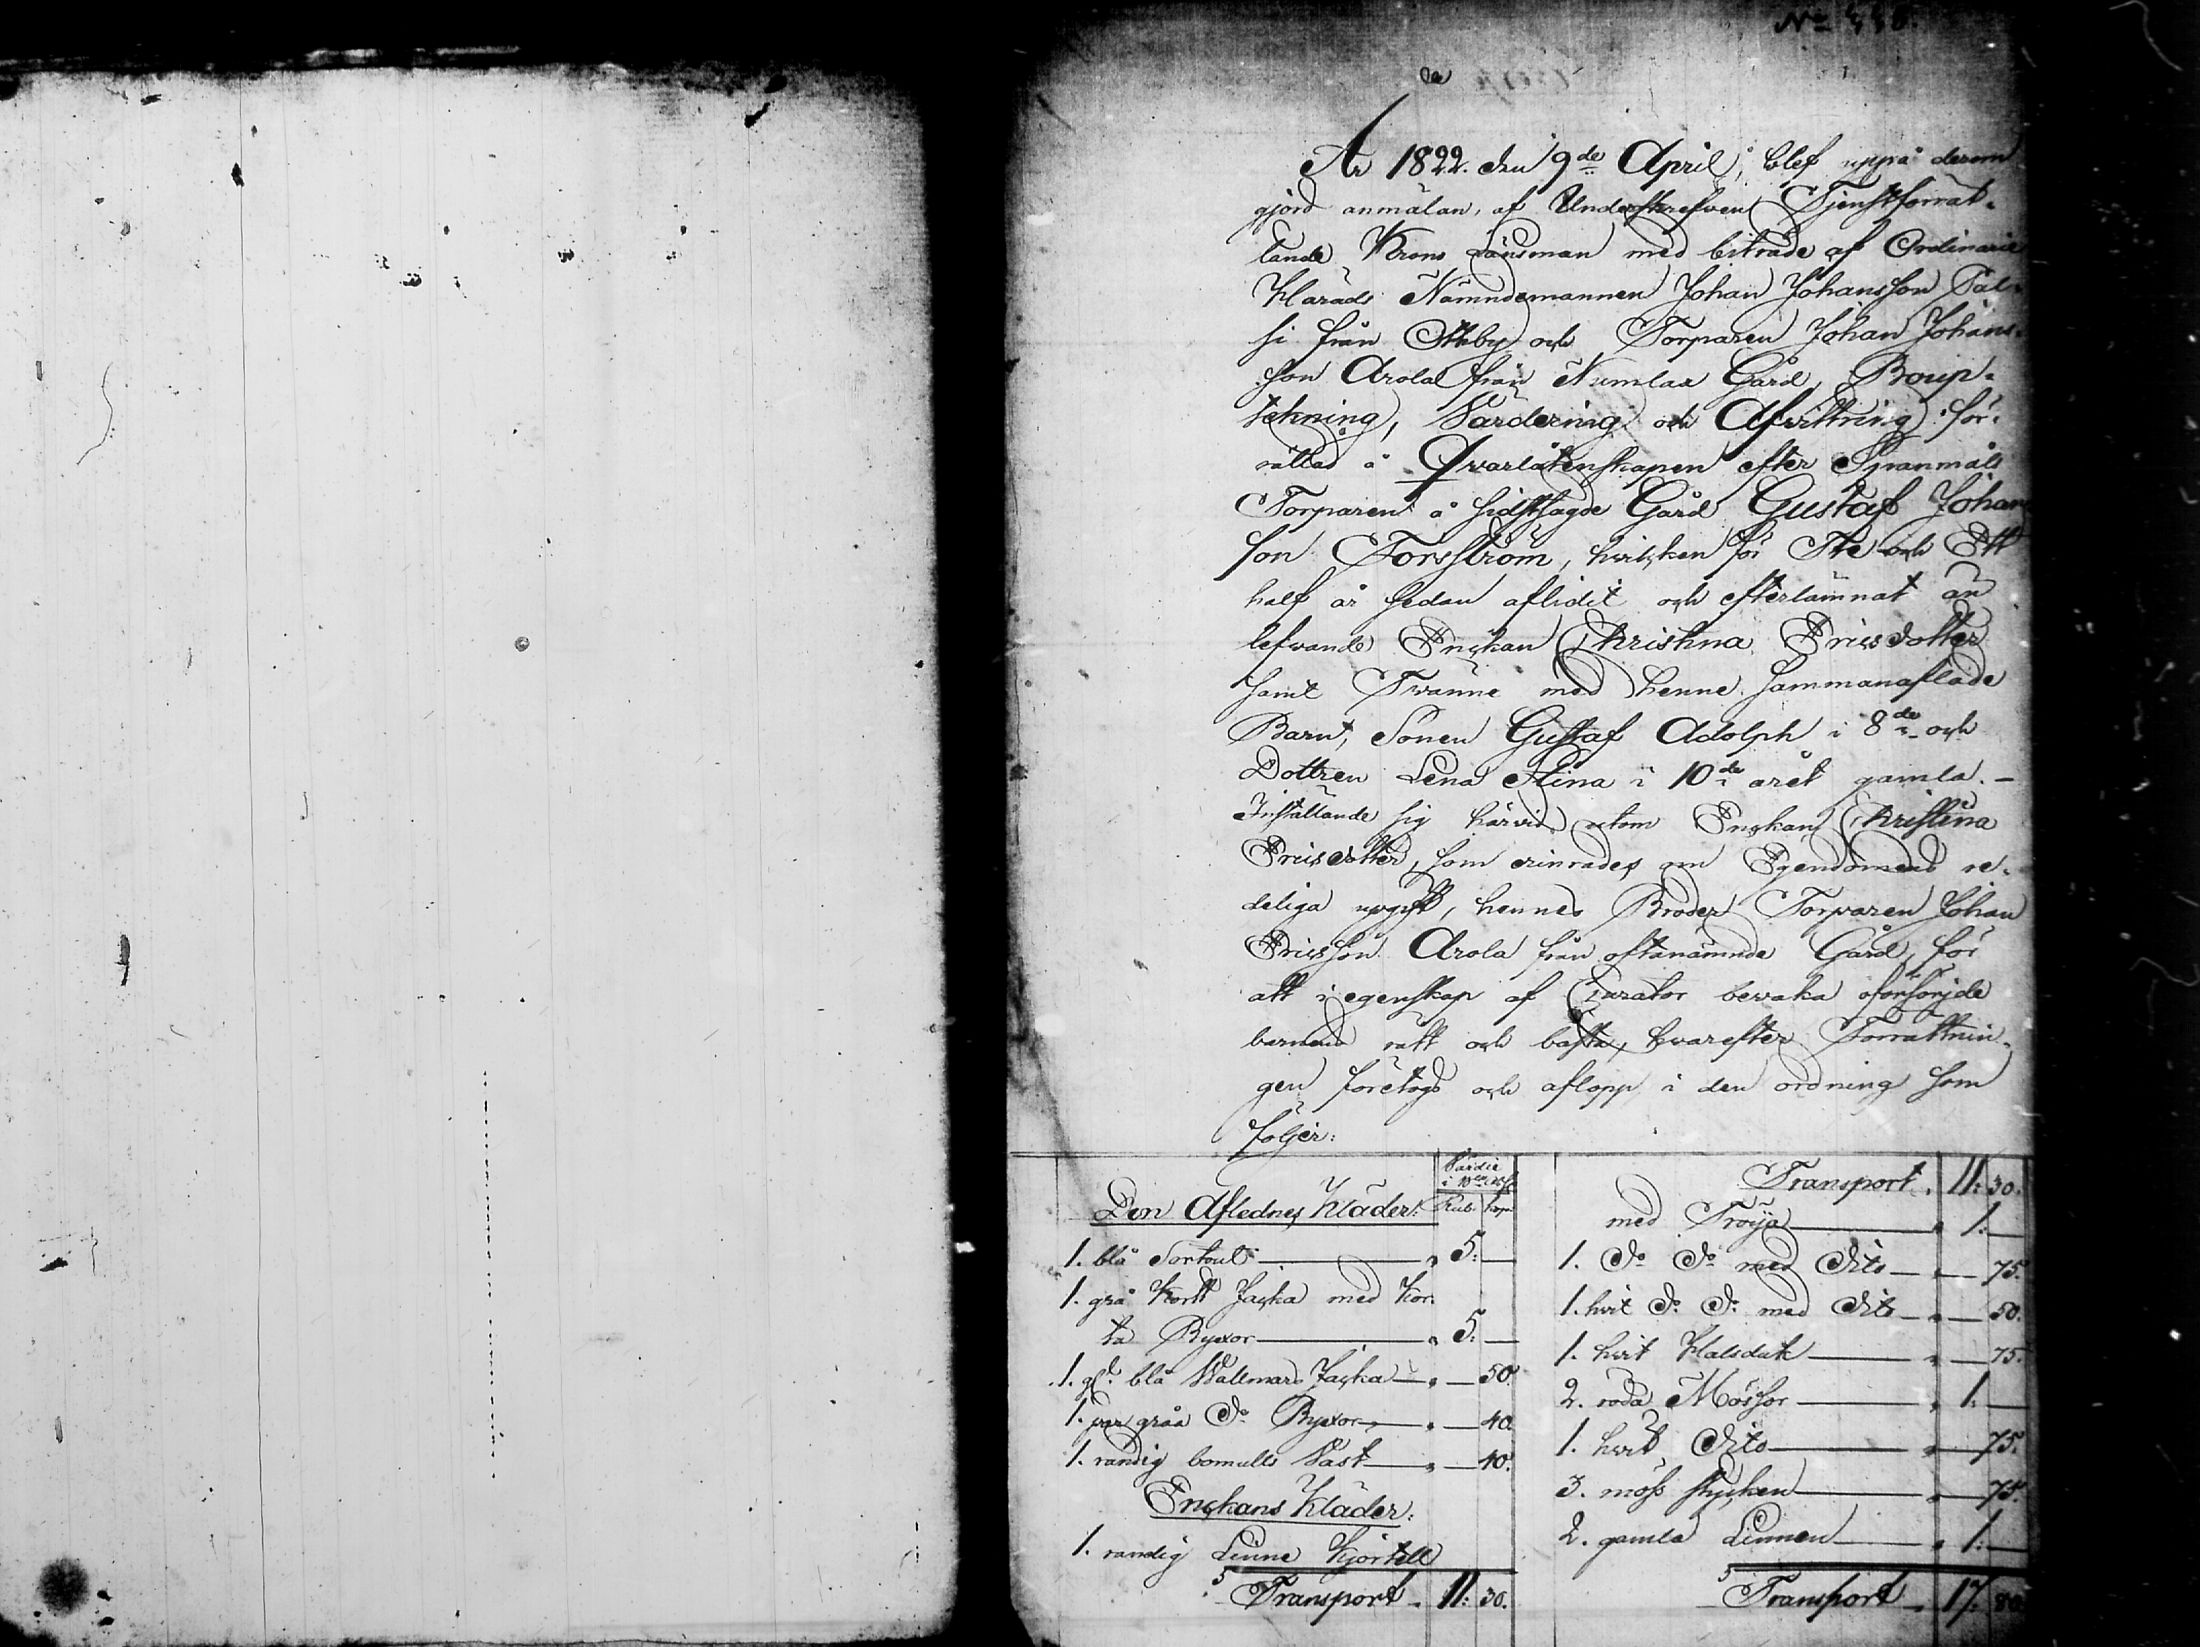 År 1822. den 9de April, blef uppå derom
gjord anmälan, af Underskrefven Tjenstförrät-
tande Krono Länsman med biträde af Ordinarie
Härads Nämndemannen Johan Johansson Pal-
si från Ottby och Torparen Johan Johans-
son Arola från Numlax Gård, Boup-
tekning, Värdering och Afvittring för-
rättad å Qvarlåtenskapen efter Spanmåls
Torparen å sidstsagde Gård Gustaf Johan
son Forsström, hvilcken för Ste och Ett
half år sedan aflidit och efterlämnat än
lefvande Enckan Christina Ericsdotter
samt Tvänne med henne sammanaflade
Barn, Sonen Gustaf Adolph i 8de och
Dottren Lena Stina i 10de året gamla. —
Inställande sig härvid, utom Enckan Christina
Ericsdotter, som erinrades om Egendomens re-
deliga uppgift, hennes Broder Torparen Johan
Ericsson Arola från oftanämnde Gård, för
att i egenskap af Curator bevaka oförsörjde
barnens rätt och bästa, hvarefter Förrättnin-
gen företogs och aflopp i den ordning som
följer:
Värdie
i B:co
Den Aflednes Kläder: Rub. kop.
1. blå Sortout — „ 5: —
1. grå Kortt Jacka med Kor-
ta Byxor — „ 5: —
1. gl. blå Wallmars Jacka — „ — 50.
1. par gråa Do Byxor — „ — 40.
1. randig bomulls Väst — „ — 40.
Enckans Kläder:
1. randig Linne Kjortell
Transport „ 11: 30.
Transport „ 11: 30.
med Tröija — „ 1: —
1. Do Do med Dito — „ — 75.
1. hvit Do Do med Dito — „ — 50.
1. hvit Halsduk — „ — 75.
2. röda Mössor — „ 1: —
1. hvit Dito — „ — 75.
3. möss stycken — „ — 75.
2. gamla Linnen — „ 1: —
Transport „ 17: 80.